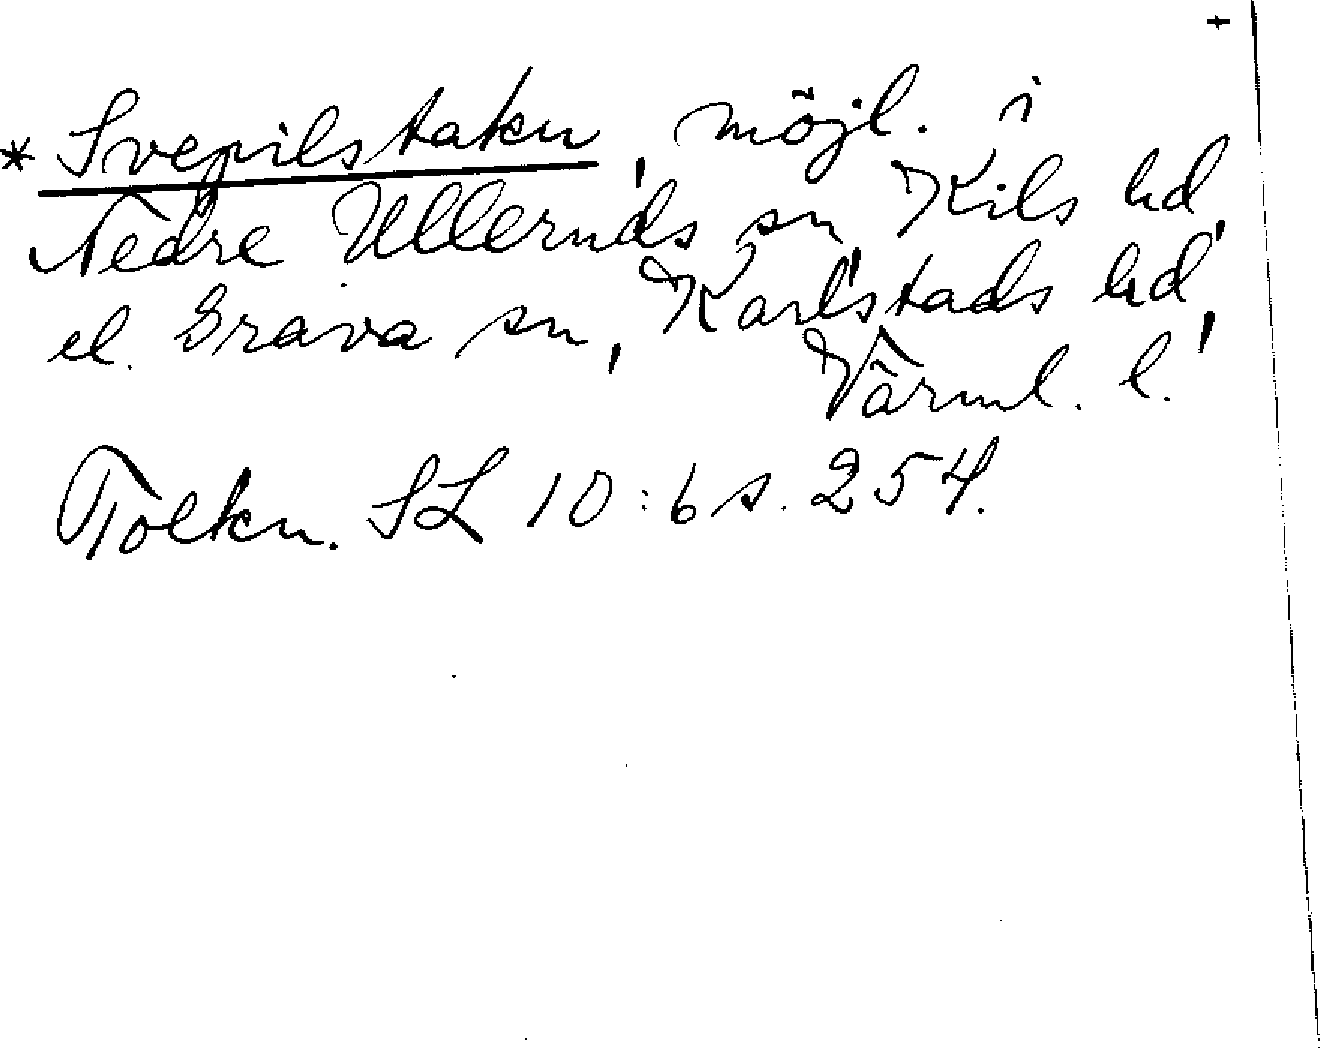 +
* Svepilstaken, möjl. i
Nedre Ulleruds sn, Kils hd,
el. Grava sn, Karlstads hd,
Värml. l.
Tolkn. SL 10:6 s. 254.